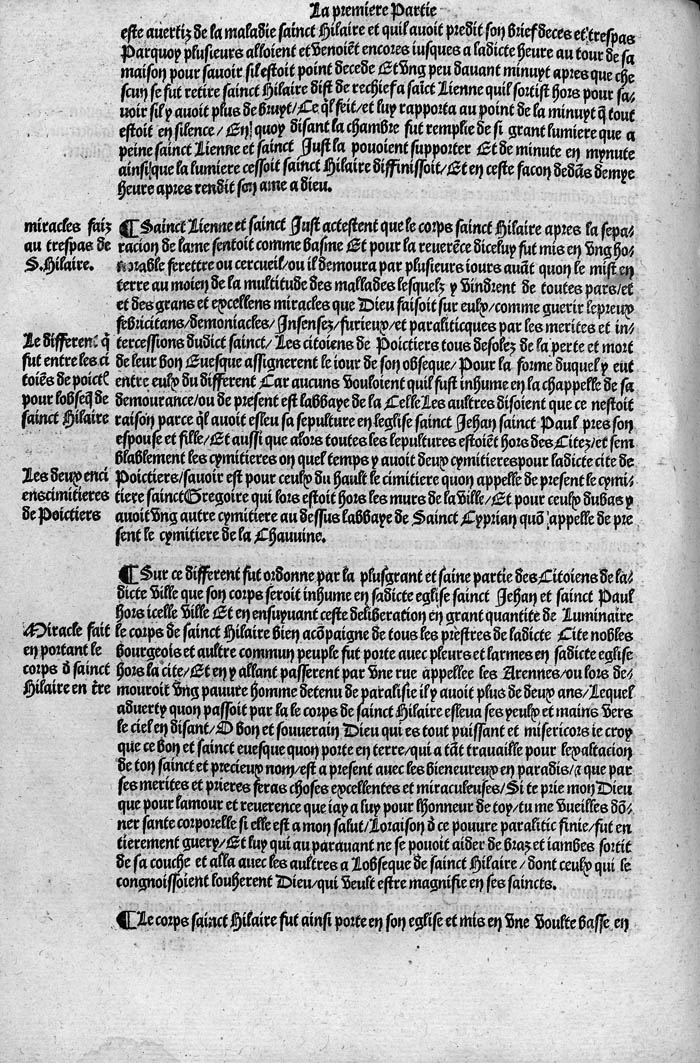 La premiere Partie
este avertiz de la maladie sainct Hilaire et quil avoit predit son brief deces et trespas
Parquoy plusieurs alloient et venoiẽt encores iusques a ladicte heure au tour de sa
maison pour savoir sil estoit point decede Et vng peu davant minuyt apres que che
scun se fut retire sainct Hilaire dist de rechief a saĩct Lienne quil sortist hors pour sa/
voir sil y avoit plus de bruyt/Ce q̃l feit/et luy rapporta au point de la minuyt q̃ tout
estoit en silence/En quoy disant la chambre fut remplie de si grant lumiere que a
peine sainct Lienne et sainct Just la pouoient supporter Et de minute en mynute
ainsi que la lumiere cessoit sainct Hilaire diffinissoit/Et en ceste facon dedãs demye
heure apres rendit son ame a dieu.
miracles faiz
au trespas de
S. Hilaire.
¶ Sainct Lienne et sainct Just actestent que le corps sainct Hilaire apres la sepa/
racion de lame sentoit comme basme Et pour la reverẽce diceluy fut mis en vng ho/
norable ferettre ou cercueil/ou il demoura par plusieurs iours auãt quon le mist en
terre au moien de la multitude des mallades lesquelz y vindrent de toutes pars/et
et des grans et excellens miracles que Dieu faisoit sur eulx/comme guerir lepreux
febricitans/demoniacles/Insensez/furieux/et paraliticques par les merites et in/
Le different q̃
fut entre les ci
toiẽs de poictl̃
pour lobseq̃ de
sainct Hilaire
tercessions dudict sainct/Les citoiens de Poictiers tous desolez de la perte et mort
de leur bon Evesque assignerent le iour de son obseque/Pour la forme duquel y eut
entre eulx du different Car aucuns vouloient quil fust inhume en la chappelle de sa
demourance/ou de present est labbaye de la Celle Les aultres disoient que ce nestoit
raison parce q̃l avoit esleu sa sepulture en leglise sainct Jehan sainct Paul pres son
espouse et fille/Et aussi que alors toutes les sepultures estoiẽt hors des Citez/et sem
blablement les cymitieres on quel temps y avoit deux cymitieres pour ladicte cite de
Les deux enci
ens cimitieres
de Poictiers
Poictiers/savoir est pour ceulx du hault le cimitiere quon appelle de present le cymi/
tiere sainct Gregoire qui lors estoit hors les murs de la ville/Et pour ceulx du bas y
avoit vng autre cymitiere au dessus labbaye de Sainct Cyprian quõ appelle de pre
sent le cymitiere de la Chauvine.
¶ Sur ce different fut ordonne par la plusgrant et saine partie des Citoiens de la/
dicte ville que son corps seroit inhume en sadicte eglise sainct Jehan et sainct Paul
hors icelle ville Et en ensuyuant ceste deliberation en grant quantite de Luminaire
Miracle fait
en portant le
corps d̃ sainct
Hilaire en t̃re
le corps de sainct Hilaire bien acõpaigne de tous les prestres de ladicte Cite nobles
bourgeois et aultre commun peuple fut porte avec pleurs et larmes en sadicte eglise
hors la cite/Et en y allant passerent par vne rue appellee les Arennes/ou lors de/
mouroit vng pauure homme detenu de paralisie il y avoit plus de deux ans/Lequel
adverty quon passoit par la le corps de sainct Hilaire esleva ses yeulx et mains vers
le ciel en disant/O bon et souverain Dieu qui es tout puissant et misericors ie croy
que ce bon et sainct evesque quon porte en terre/qui a tãt travaille pour lexaltacion
de ton sainct et precieux nom/est a present avec les bieneureux en paradis/⁊ que par
ses merites et prieres feras choses excellentes et miraculeuses/Si te prie mon Dieu
que pour lamour et reverence que iay a luy pour lhonneur de toy/tu me vueilles dõ/
ner sante corporelle si elle est a mon salut/Loraison d̃ ce pouure paralitic finie/fut en
tierement guery/Et luy qui au parauant ne se pouoit aider de braz et iambes sortit
de sa couche et alla avec les aultres a Lobseque de sainct Hilaire/dont ceulx qui le
congnoissoient louherent Dieu/qui veult estre magnifie en ses saincts.
¶ Le corps sainct Hilaire fut ainsi porte en son eglise et mis en vne voulte basse en